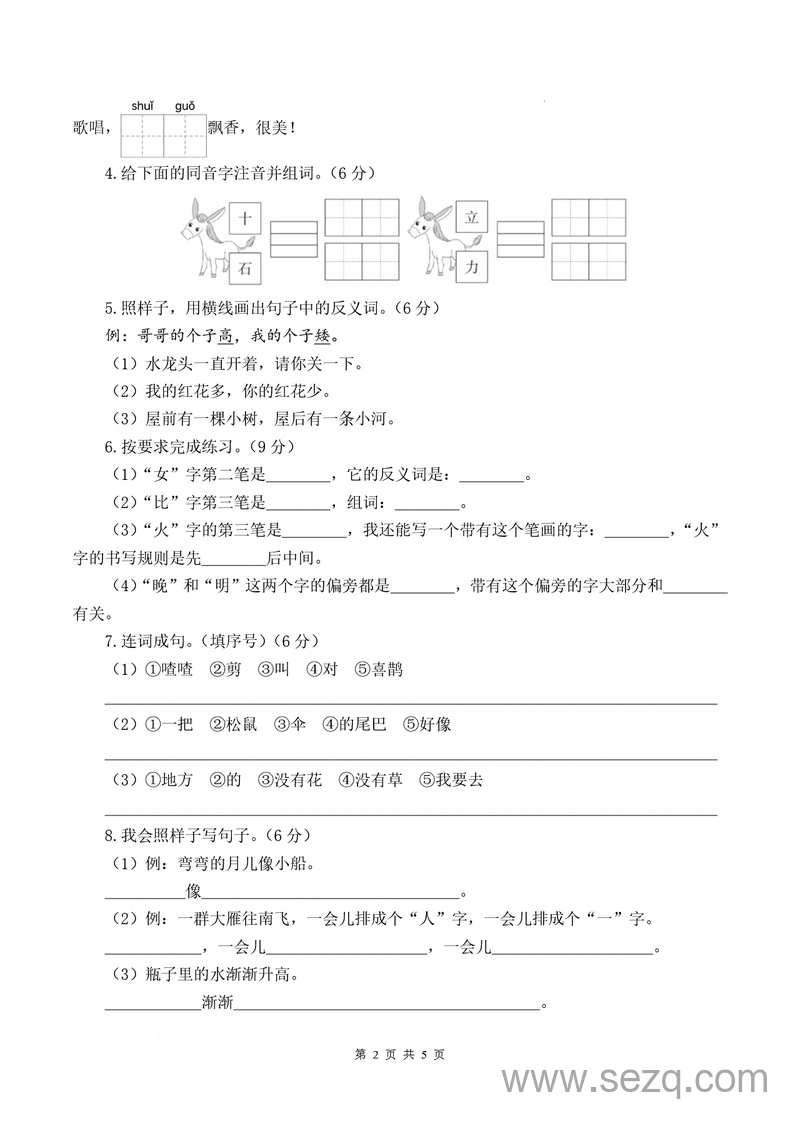 shuǐ guǒ
歌唱，飘香，很美！
4.给下面的同音字注音并组词。（6 分）
十 立
石 力
5.照样子，用横线画出句子中的反义词。（6 分）
例：哥哥的个子高，我的个子矮。
（1）水龙头一直开着，请你关一下。
（2）我的红花多，你的红花少。
（3）屋前有一棵小树，屋后有一条小河。
6.按要求完成练习。（9 分）
（1）“女”字第二笔是________，它的反义词是：________。
（2）“比”字第三笔是________，组词：________。
（3）“火”字的第三笔是________，我还能写一个带有这个笔画的字：________，“火”
字的书写规则是先________后中间。
（4）“晚”和“明”这两个字的偏旁都是________，带有这个偏旁的字大部分和________
有关。
7.连词成句。（填序号）（6 分）
（1）①喳喳 ②剪 ③叫 ④对 ⑤喜鹊
（2）①一把 ②松鼠 ③伞 ④的尾巴 ⑤好像
（3）①地方 ②的 ③没有花 ④没有草 ⑤我要去
8.我会照样子写句子。（6 分）
（1）例：弯弯的月儿像小船。
__________像________________________________。
（2）例：一群大雁往南飞，一会儿排成个“人”字，一会儿排成个“一”字。
____________，一会儿____________________，一会儿____________________。
（3）瓶子里的水渐渐升高。
____________渐渐______________________________________。
第 2 页 共 5 页
www.sezq.com